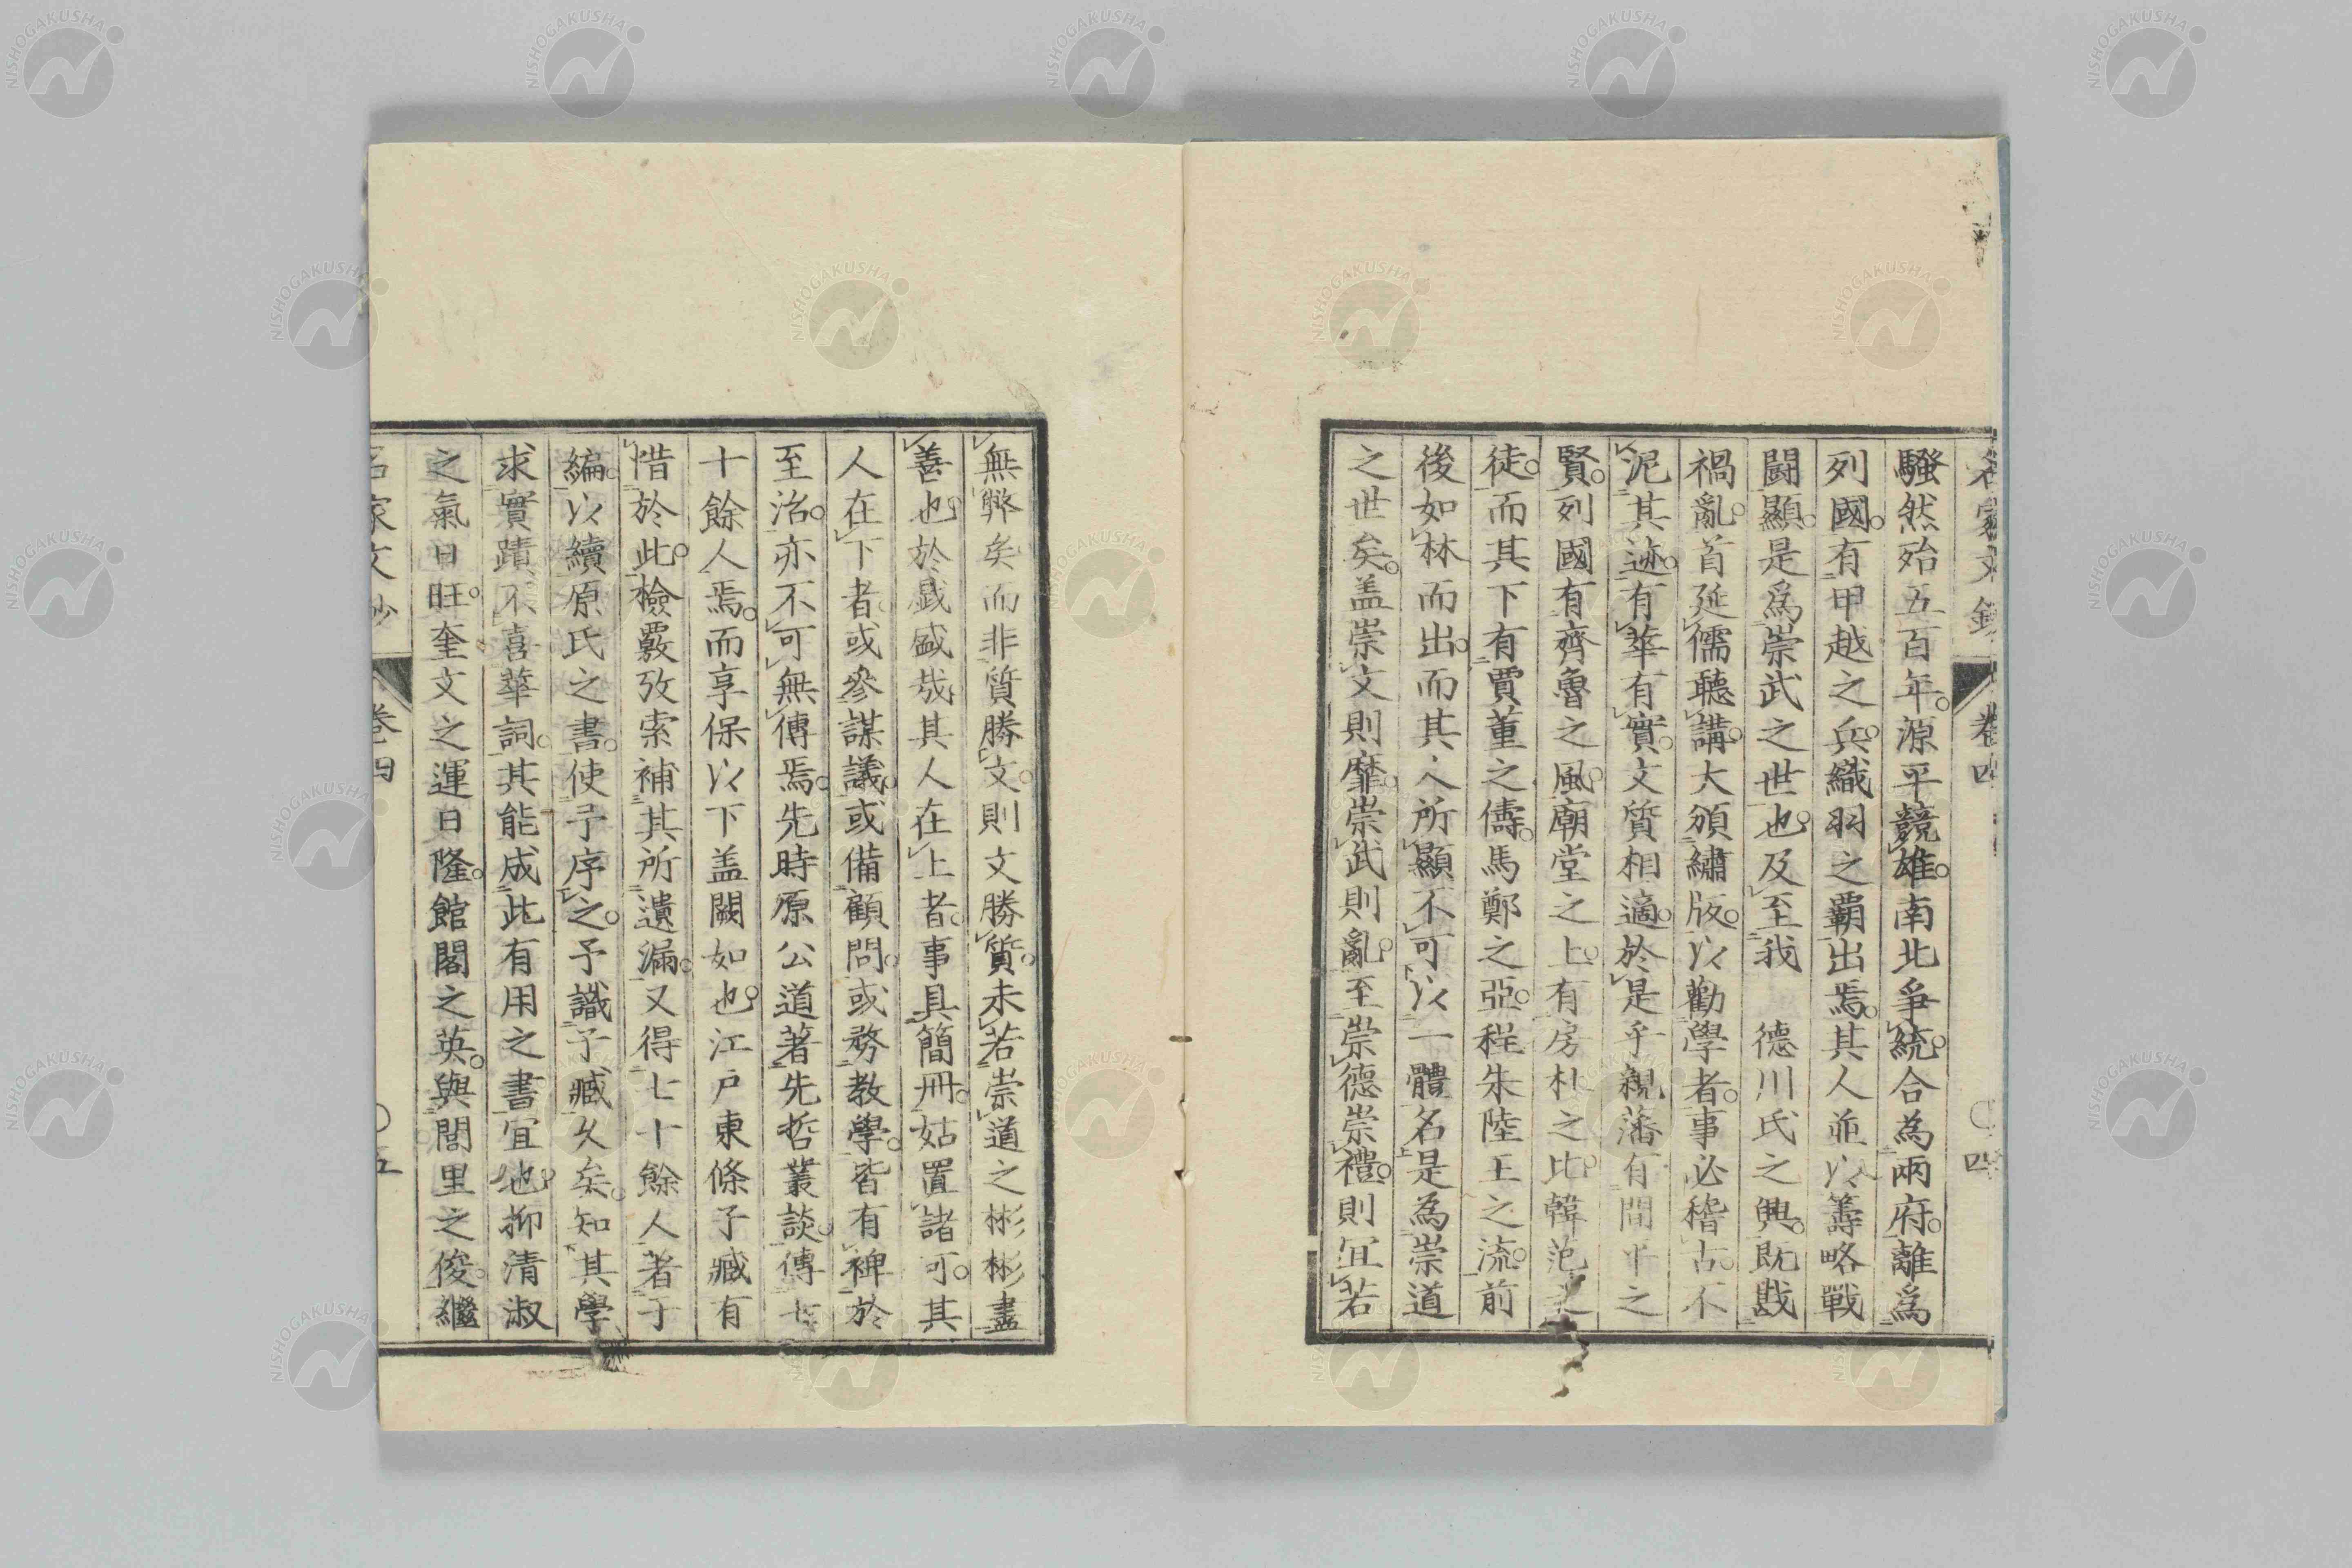 名家文鈔 卷四 〇四
騷然殆五百年。源平競雄。南北爭統。合為兩府。離爲
列國。有甲越之兵。織羽之霸出焉。其人並以籌略戰
鬪顯。是爲崇武之世也。及至我 德川氏之興。既戡
禍亂。首延儒聽講。大頒繡版。以勸學者。事必稽古。不
泥其迹。有華有實。文質相適。於是乎親藩有間平之
賢。列國有齊魯之風。廟堂之上。有房杜之比韓范之
徒。而其下有賈董之儔。馬鄭之亞。程朱陸王之流。前
後如林而出。而其人所顯不可以一體名。是為崇道
之世矣。盖崇文則靡。崇武則亂。至崇德崇禮。則冝若
無弊矣。而非質勝文。則文勝質。未若崇道之彬彬盡
善也。於戲盛哉。其人在上者。事具簡冊。姑置諸可。其
人在下者。或參謀議。或備顧問。或務教學。皆有裨於
至治。亦不可無傳焉。先時原公道著先哲叢談。傳七
十餘人焉。而享保以下盖闕如也。江戶東條子臧有
惜於此。檢覈攷索補其所遺漏。又得七十餘人。著于
編。以續原氏之書。使予序之。予識子臧久矣。知其學
求實蹟不喜華詞。其能成此有用之書宜也。抑清淑
之氣日旺。奎文之運日隆。館閣之英。與閭里之俊。繼
名家文鈔 卷四 〇五
NISHOGAKUSHA